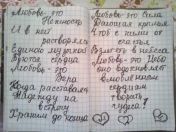 Любовь- это
Нежность
И в ней
растворяясь
Единою музыкой
Бьются сердца
Любовь- это
Вера
Когда расставаясь
Надежду на
встречу
Храним до конца
Любовь- это Сила
Дающая крылья
Чтоб с ними от
счастья
Взлететь в небеса
Любовь- это Чудо
оно вдохновляет
влюблённым
сердцам
творить
чудеса!